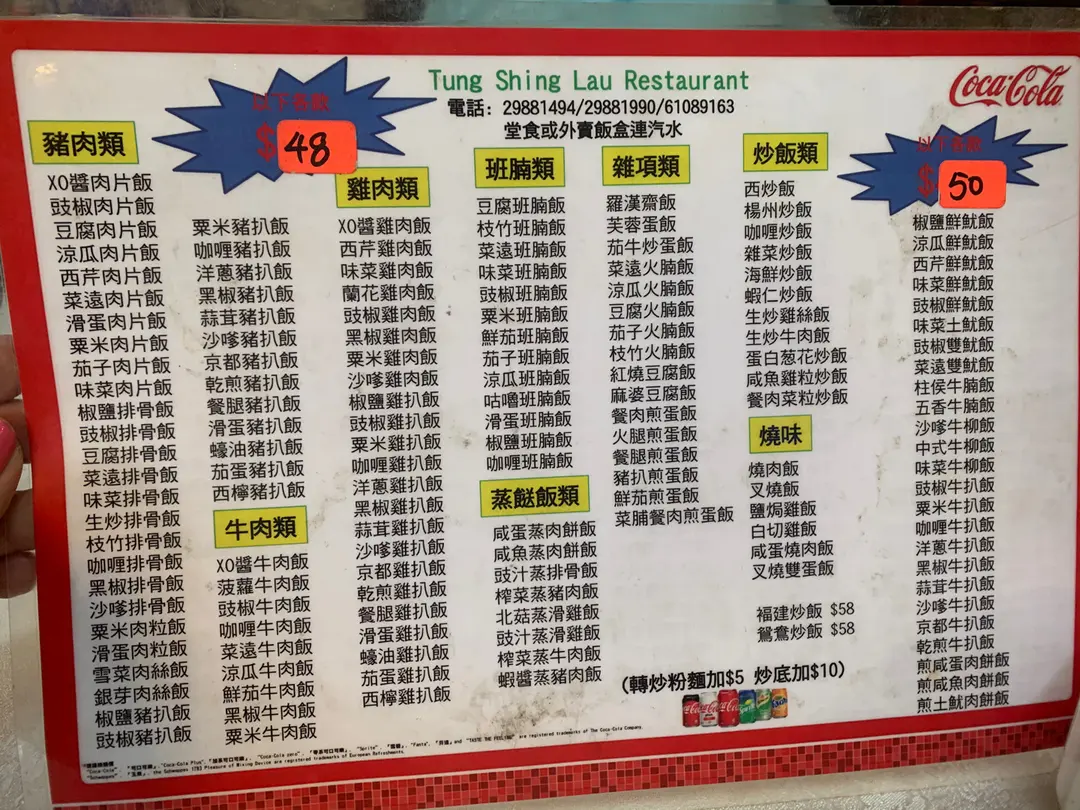 Tung Shing Lau Restaurant
電話: 29881494/29881990/61089163
堂食或外賣飯盒連汽水
Coca-Cola
以下各款
$48
豬肉類
XO醬肉片飯
豉椒肉片飯
豆腐肉片飯
涼瓜肉片飯
西芹肉片飯
菜遠肉片飯
滑蛋肉片飯
粟米肉片飯
茄子肉片飯
味菜肉片飯
椒鹽排骨飯
豉椒排骨飯
豆腐排骨飯
菜遠排骨飯
味菜排骨飯
生炒排骨飯
枝竹排骨飯
咖喱排骨飯
黑椒排骨飯
沙嗲排骨飯
粟米肉粒飯
滑蛋肉粒飯
雪菜肉絲飯
銀芽肉絲飯
椒鹽豬扒飯
豉椒豬扒飯
粟米豬扒飯
咖喱豬扒飯
洋蔥豬扒飯
黑椒豬扒飯
蒜茸豬扒飯
沙嗲豬扒飯
京都豬扒飯
乾煎豬扒飯
餐腿豬扒飯
滑蛋豬扒飯
蠔油豬扒飯
茄蛋豬扒飯
西檸豬扒飯
牛肉類
XO醬牛肉飯
菠蘿牛肉飯
豉椒牛肉飯
咖喱牛肉飯
菜遠牛肉飯
涼瓜牛肉飯
鮮茄牛肉飯
黑椒牛肉飯
粟米牛肉飯
雞肉類
XO醬雞肉飯
西芹雞肉飯
味菜雞肉飯
蘭花雞肉飯
豉椒雞肉飯
黑椒雞肉飯
粟米雞肉飯
沙嗲雞肉飯
椒鹽雞扒飯
豉椒雞扒飯
粟米雞扒飯
咖喱雞扒飯
洋蔥雞扒飯
黑椒雞扒飯
蒜茸雞扒飯
沙嗲雞扒飯
京都雞扒飯
乾煎雞扒飯
餐腿雞扒飯
滑蛋雞扒飯
蠔油雞扒飯
茄蛋雞扒飯
西檸雞扒飯
班腩類
豆腐班腩飯
枝竹班腩飯
菜遠班腩飯
味菜班腩飯
豉椒班腩飯
粟米班腩飯
鮮茄班腩飯
茄子班腩飯
涼瓜班腩飯
咕嚕班腩飯
滑蛋班腩飯
椒鹽班腩飯
咖喱班腩飯
蒸餸飯類
咸蛋蒸肉餅飯
咸魚蒸肉餅飯
豉汁蒸排骨飯
榨菜蒸豬肉飯
北菇蒸滑雞飯
豉汁蒸滑雞飯
榨菜蒸牛肉飯
蝦醬蒸豬肉飯
雜項類
羅漢齋飯
芙蓉蛋飯
茄牛炒蛋飯
菜遠火腩飯
涼瓜火腩飯
豆腐火腩飯
茄子火腩飯
枝竹火腩飯
紅燒豆腐飯
麻婆豆腐飯
餐肉煎蛋飯
火腿煎蛋飯
餐腿煎蛋飯
豬扒煎蛋飯
鮮茄煎蛋飯
菜脯餐肉煎蛋飯
炒飯類
西炒飯
楊州炒飯
咖喱炒飯
雜菜炒飯
海鮮炒飯
蝦仁炒飯
生炒雞絲飯
生炒牛肉飯
蛋白葱花炒飯
咸魚雞粒炒飯
餐肉菜粒炒飯
燒味
燒肉飯
叉燒飯
鹽焗雞飯
白切雞飯
咸蛋燒肉飯
叉燒雙蛋飯
福建炒飯 $58
鴛鴦炒飯 $58
(轉炒粉麵加$5 炒底加$10)
以下各款
$50
椒鹽鮮魷飯
涼瓜鮮魷飯
西芹鮮魷飯
味菜鮮魷飯
豉椒鮮魷飯
味菜土魷飯
豉椒雙魷飯
菜遠雙魷飯
柱侯牛腩飯
五香牛腩飯
沙嗲牛柳飯
中式牛柳飯
味菜牛柳飯
豉椒牛扒飯
粟米牛扒飯
咖喱牛扒飯
洋蔥牛扒飯
黑椒牛扒飯
蒜茸牛扒飯
沙嗲牛扒飯
京都牛扒飯
乾煎牛扒飯
煎咸蛋肉餅飯
煎咸魚肉餅飯
煎土魷肉餅飯